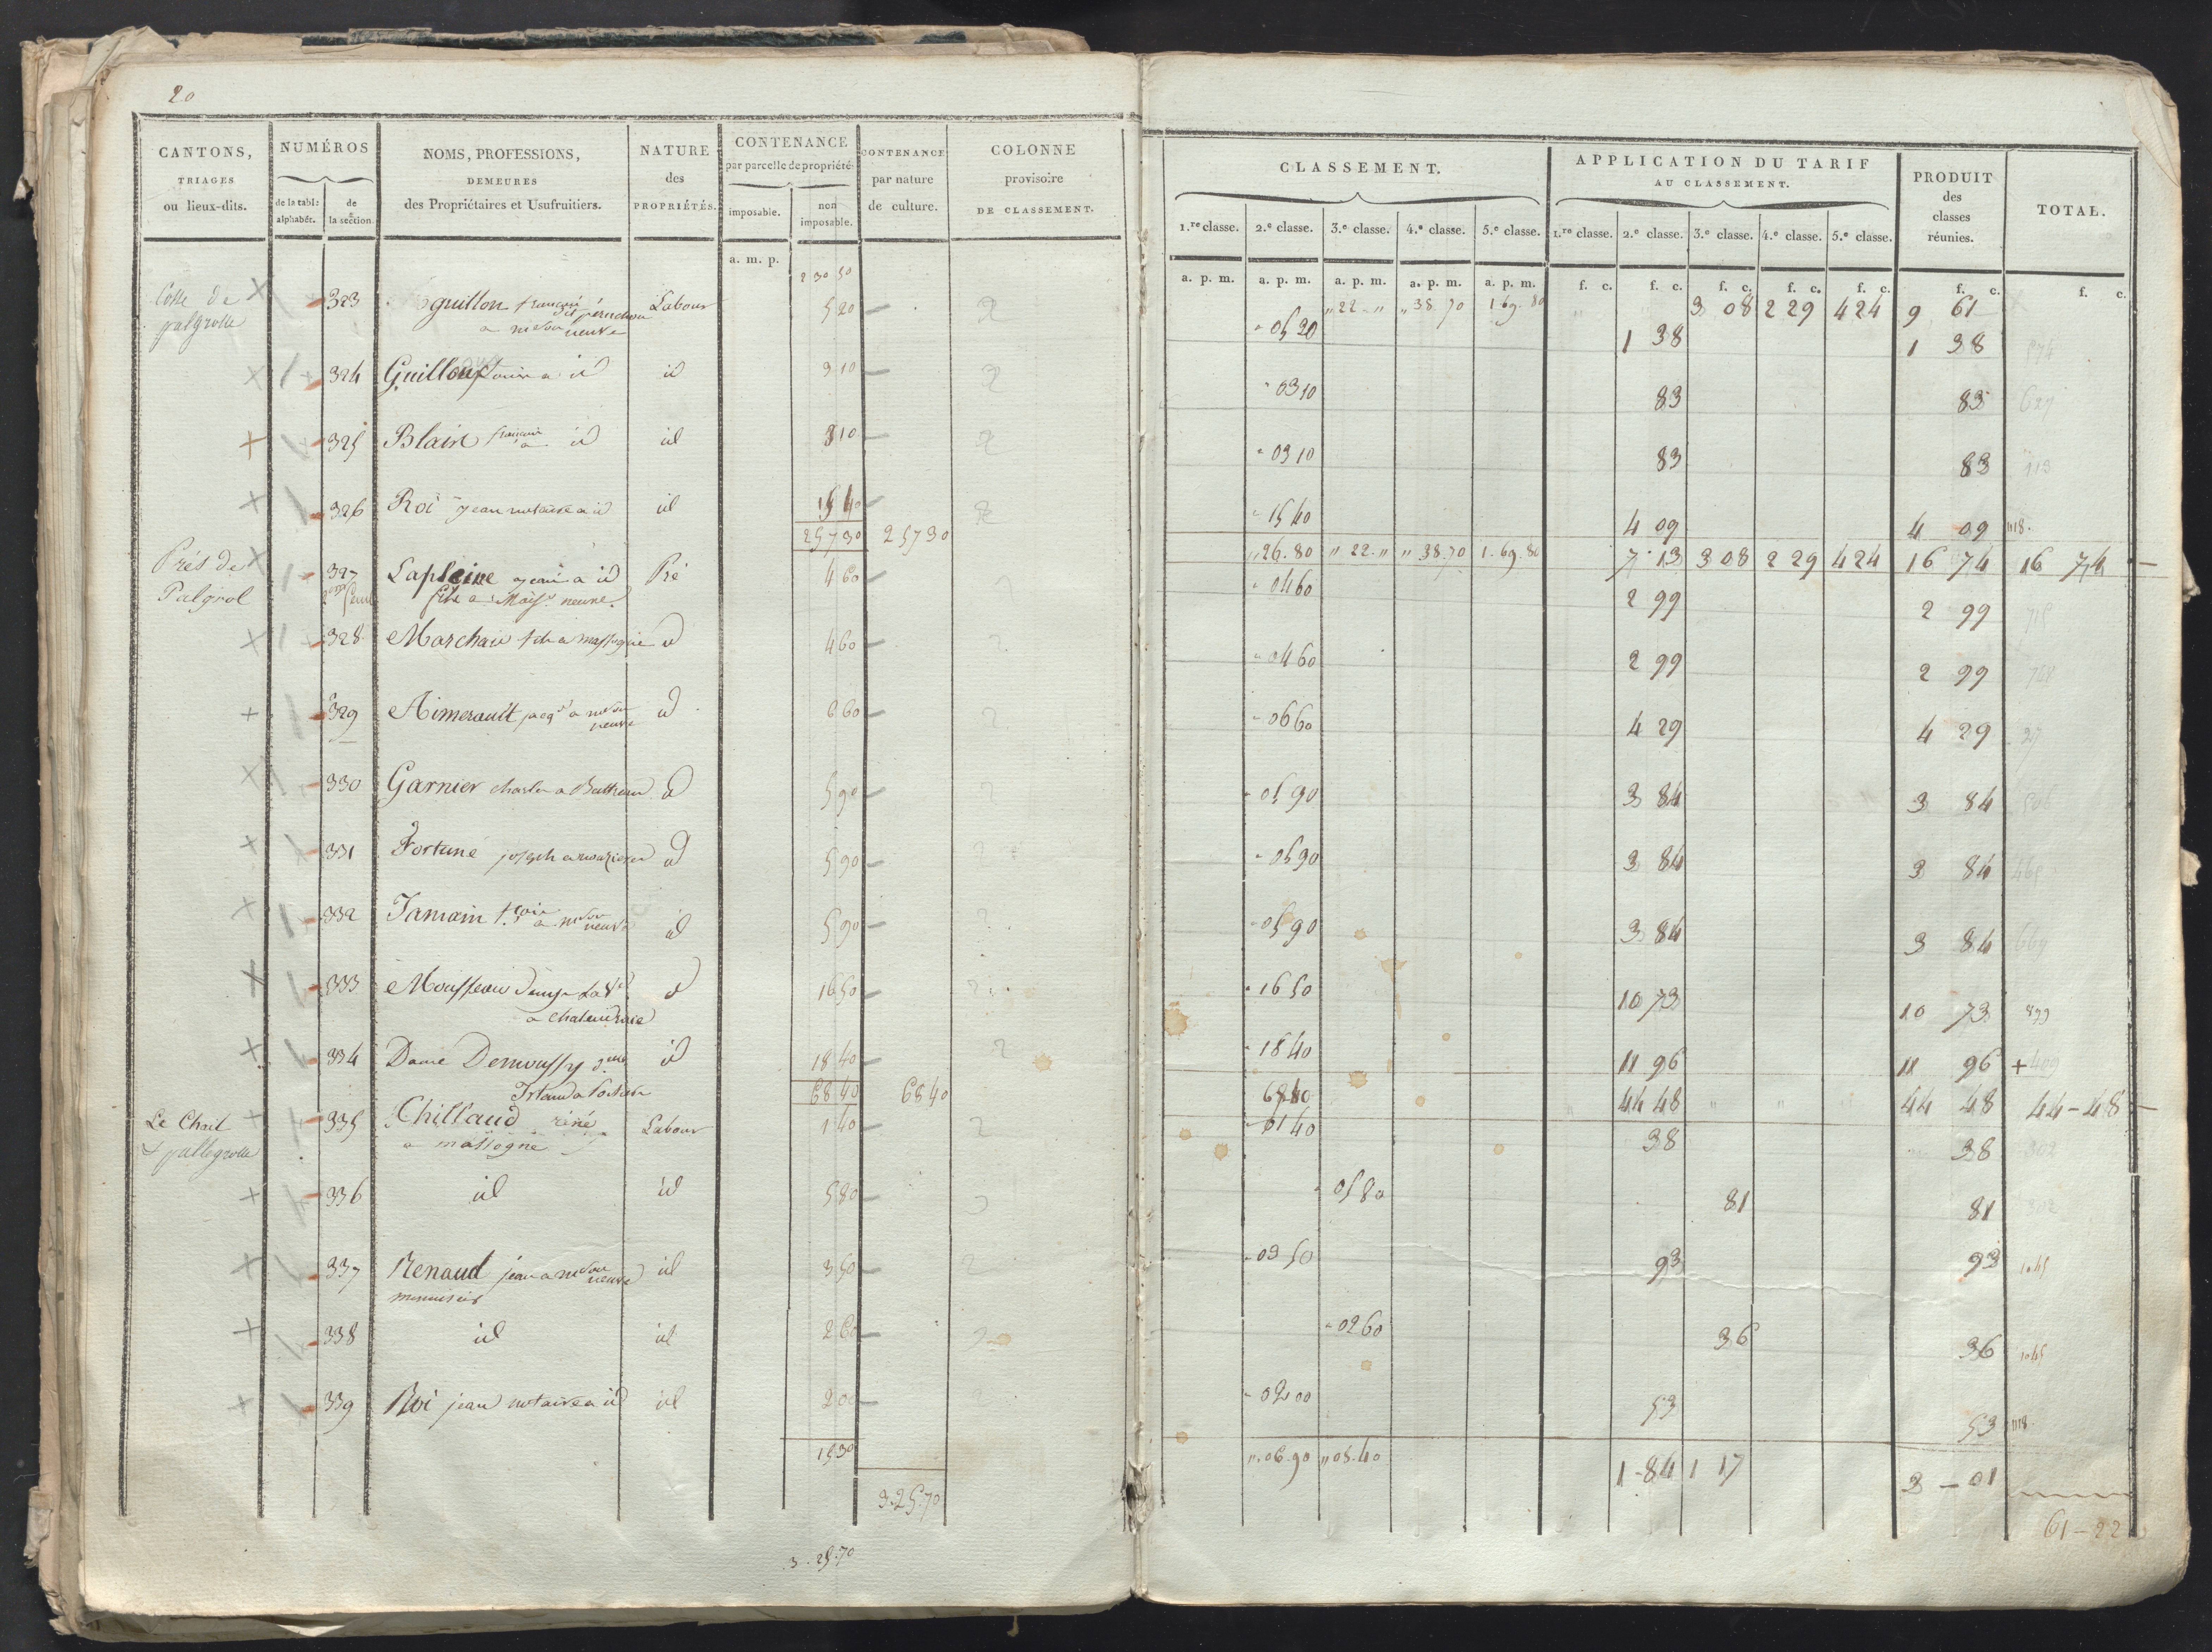 20
CANTONS, TRIAGES ou lieux-dits.
NUMÉROS
de la tabl: alphabét.
de la section.
NOMS, PROFESSIONS, DEMEURES des Propriétaires et Usufruitiers.
NATURE des PROPRIÉTÉS.
CONTENANCE par parcelle de propriété
imposable.
non imposable.
CONTENANCE par nature de culture.
COLONNE provisoire DE CLASSEMENT.
a. m. p.
230 50
323 guillon françois Labour 520 2
palgrolle
a m.son neuve
324 Guillon a id id 310 2
325 Blain françois a id id 310 2
326 Roi jean notaire a id id 1540 2
25730 25730
Prés de 327 Laplaine jean a id Pré 460 2
Palgrol a Mais. neuve
328 Marchais a massogne id 460 2
329 Aimerault jacq. a m.son neuve id 660 2
330 Garnier charles a id 590 2
331 Fortuné joseph a id 590 2
332 Jamain f.çois a m.son neuve id 590 2
333 Mousseau id 1650 2
334 Dame Demoussy id 1840 2
6840 6840
Le Chail 335 Chillaud réné Labour 140 2
pallegrolle a massogne
336 id id 580 3
337 Renaud jean a m.son neuve id 350 2
menuisier
338 id id 260 3
339 Roi jean notaire a id id 200
1530
3.25.70
3.25.70
CLASSEMENT.
1.re classe. 2.e classe. 3.e classe. 4.e classe. 5.e classe.
APPLICATION DU TARIF AU CLASSEMENT.
1.re classe. 2.e classe. 3.e classe. 4.e classe. 5.e classe.
PRODUIT des classes réunies.
TOTAL.
a. p. m. a. p. m. a. p. m. a. p. m. a. p. m. f. c. f. c. f. c. f. c. f. c. f. c. f. c.
" 22 " " 38.70 1.69.80 3 08 2 29 4 24 9 61
0520 1 38 1 38
0310 83 83 627
0310 83 83 113
1540 4 09 4 09 1118.
" 26.80 " 22. " " 38.70 1.69.80 7 13 3 08 2 29 4 24 16 74 16 74
0460 2 99 2 99
0460 2 99 2 99
0660 4 29 4 29
0590 3 84 3 84 506
0590 3 84 3 84
0590 3 84 3 84 669
1650 10 73 10 73 899
1840 11 96 11 96 + 409
6840 44 48 44 48 44 - 48
0140 38 38 302
0580 81 81 302
0350 93 93 1045
0260 36 36 1045
0200 53 53 1118
" .06.90 " 08.40 1 - 84 1 17 3 - 01
61 - 22